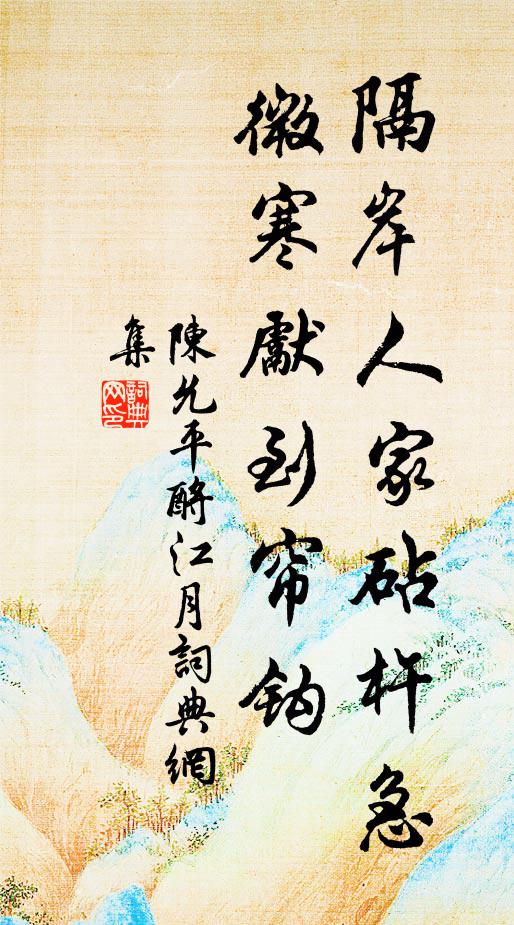 隔岸人家砧杵急
微寒獻到帘鈎
陳允平酹江月詞典網
集
詞典
网印